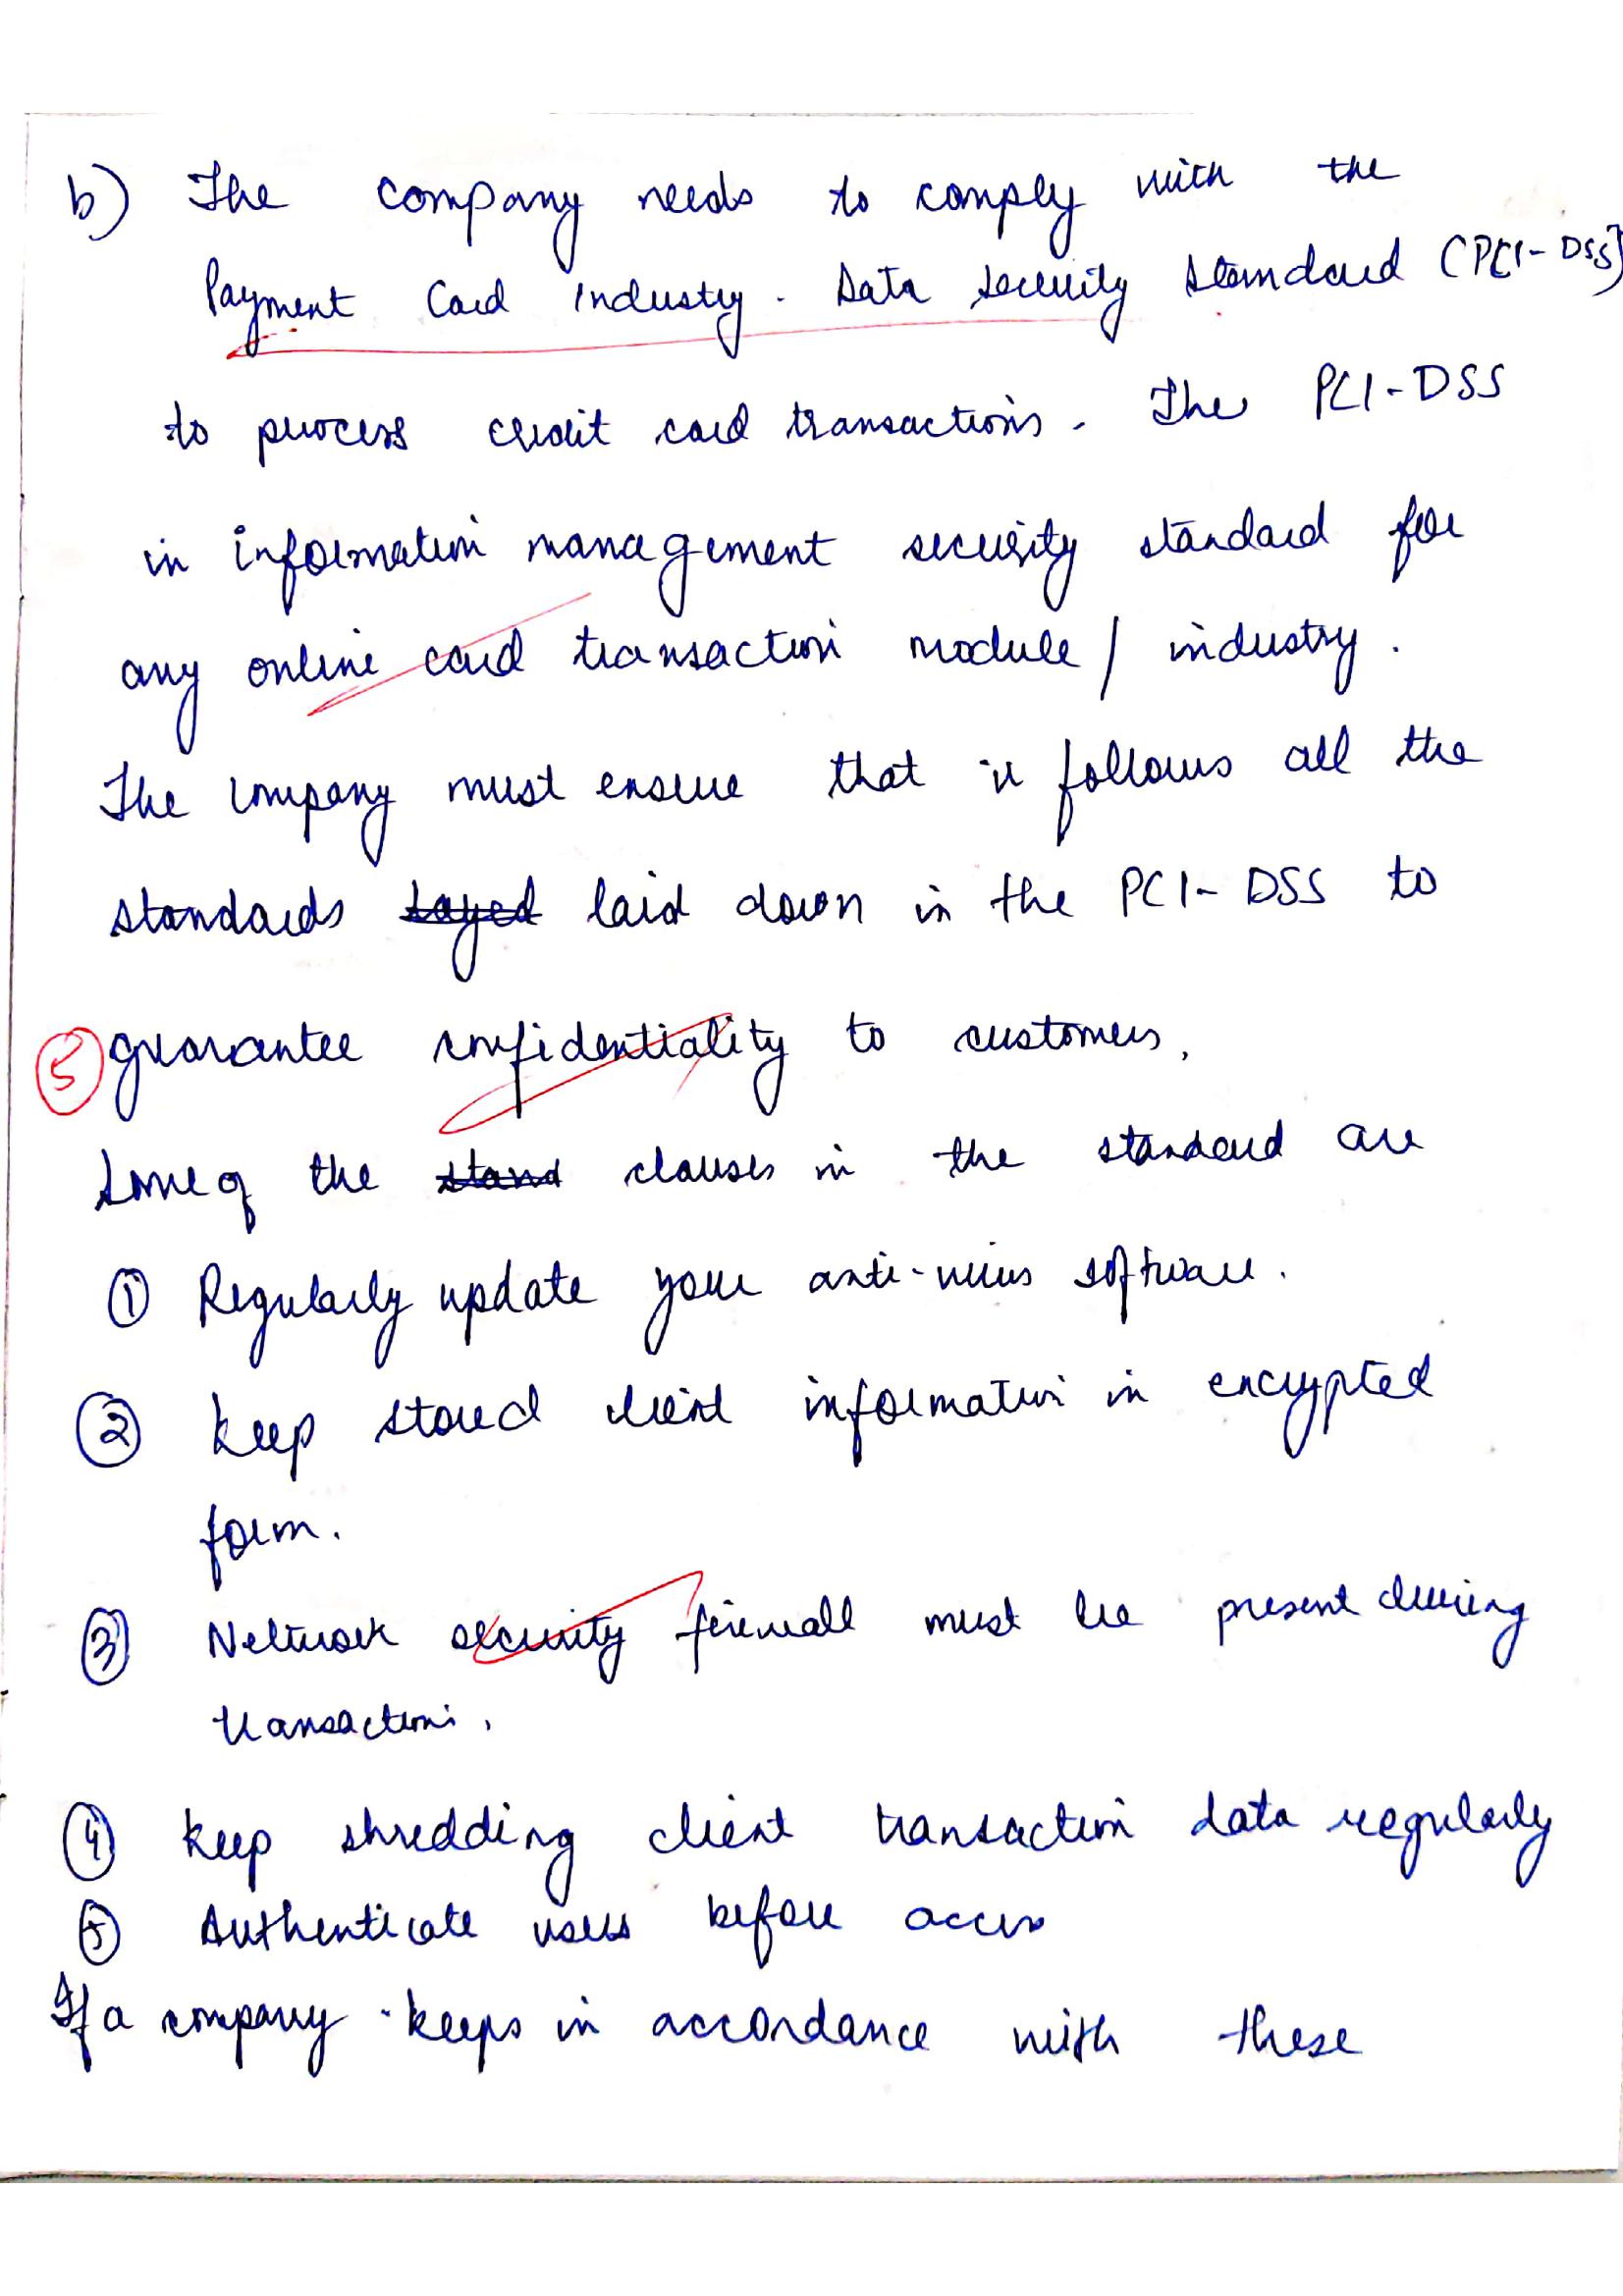 b) The company needs to comply with the
Payment Card Industry. Data Security Standard (PCI-DSS)
to process credit card transactions. The PCI-DSS
in information management security standard for
any online card transaction module / industry.
The company must ensure that it follows all the
standards layed laid down in the PCI-DSS to
5 guarantee confidentiality to customers.
Some of the stand clauses in the standard are
① Regularly update your anti-virus software.
② Keep stored client information in encrypted
form.
③ Network security firewall must be present during
transactions.
④ Keep shredding client transaction data regularly
⑤ Authenticate users before access
If a company keeps in accordance with these